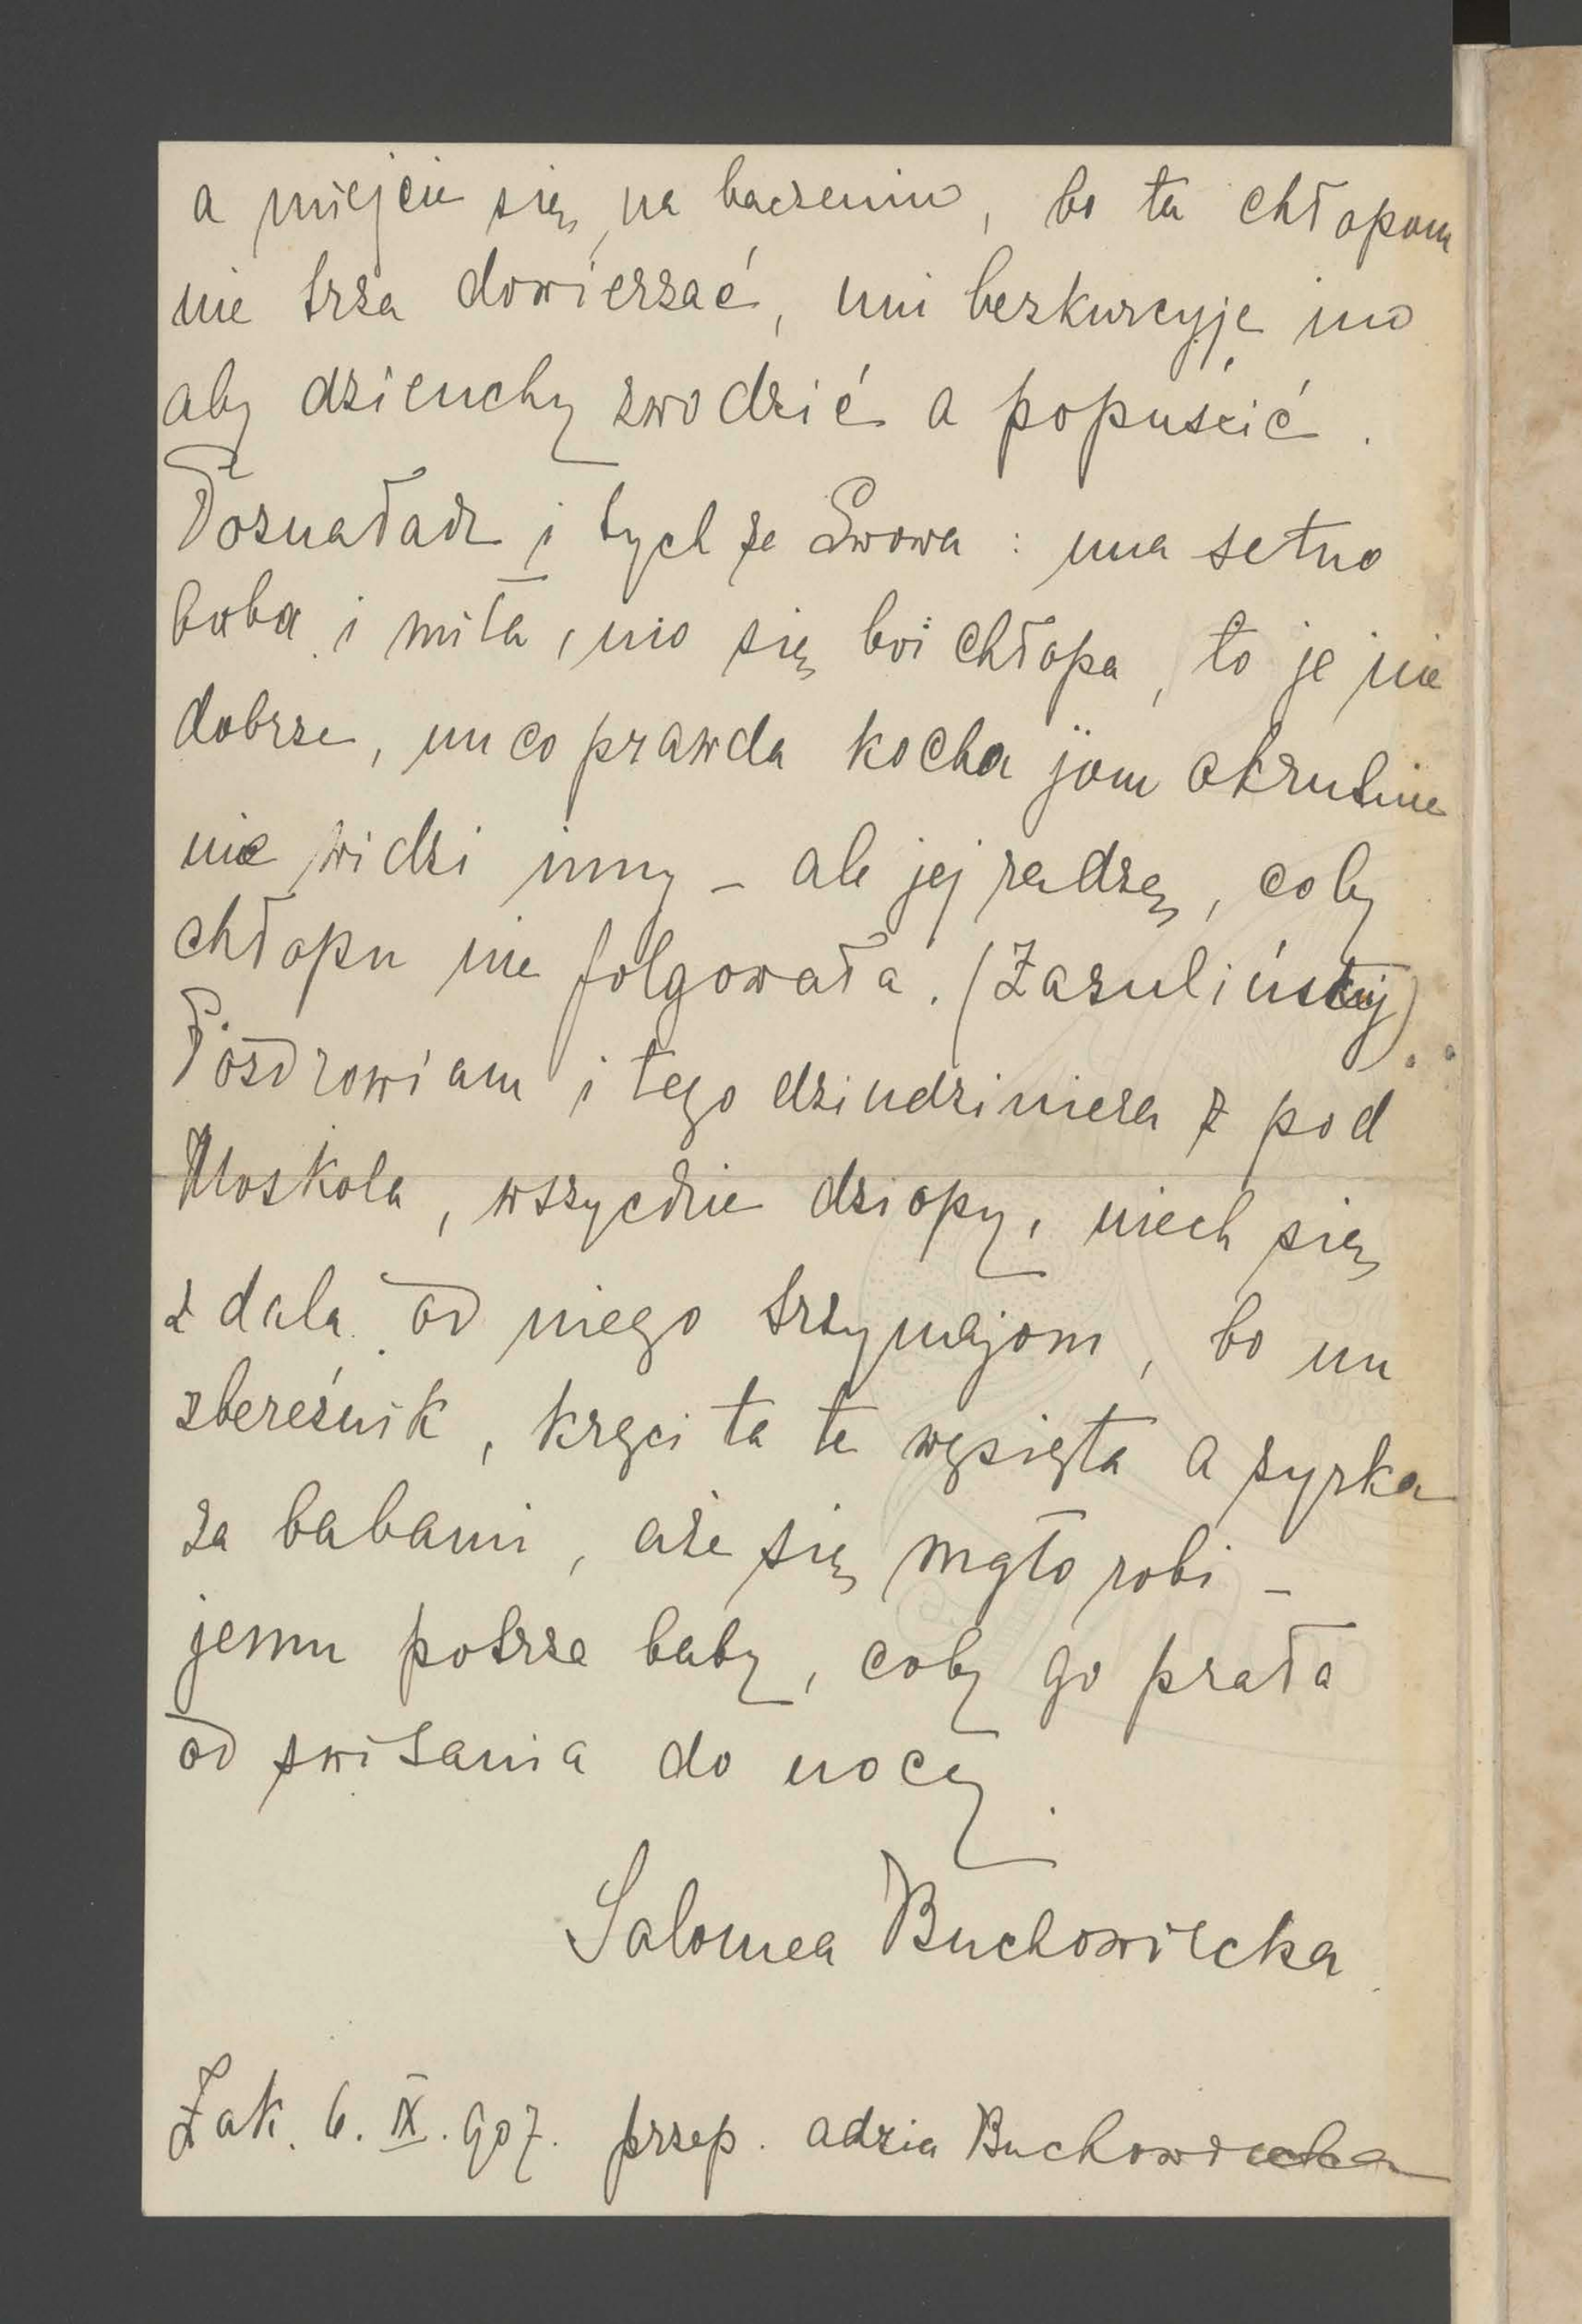 a miejcie się na baczeniu, bo ta chłopom
nie trza dowierzać, uni bezkurcyje ino
aby dzieuchy zwodzić a popuścić.
Poznałach i tych ze Lwowa: una setno
baba i miła, ino się boi chłopa, to je nie
dobrze, un co prawda kocha jom okrutnie
nie widzi inny – ale jej radzę, coby
chłopu nie folgowała. (Zazulińskij)
Pozdrowiam i tego dziudziniera z pod
Moskola, wszyćkie dziopy, niech się
z dala od niego trzymajom, bo un
zbereźnik, kręci ta te węsięta a zyrka
za babami, aże się mgło robi –
jemu potrza baby, coby go prała
od switania do nocy.
Salomea Buchowiecka
Zak. 6. IX. 907. przep. Adzia Buchowiecka